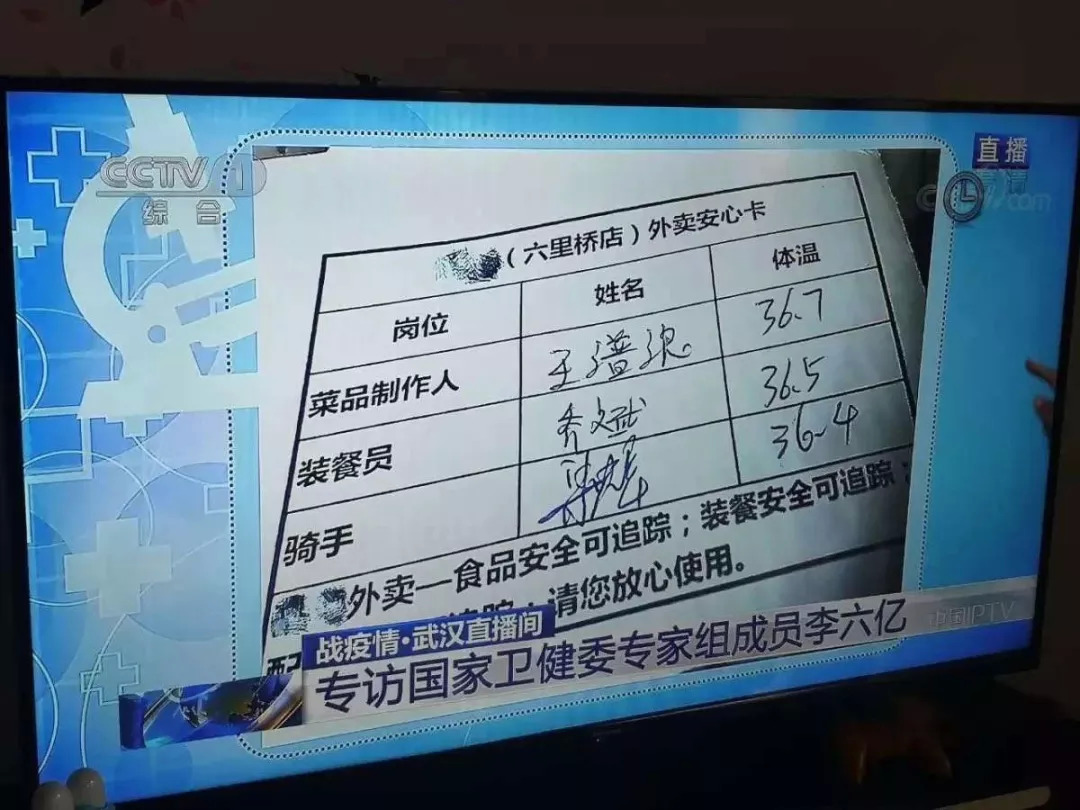 CCTV 1
综合
直播
（六里桥店）外卖安心卡
岗位 姓名 体温
菜品制作人 36.7
装餐员 36.5
骑手 36.4
外卖—食品安全可追踪；装餐安全可追踪；
请您放心使用。
战疫情·武汉直播间
专访国家卫健委专家组成员李六亿
中国IPTV